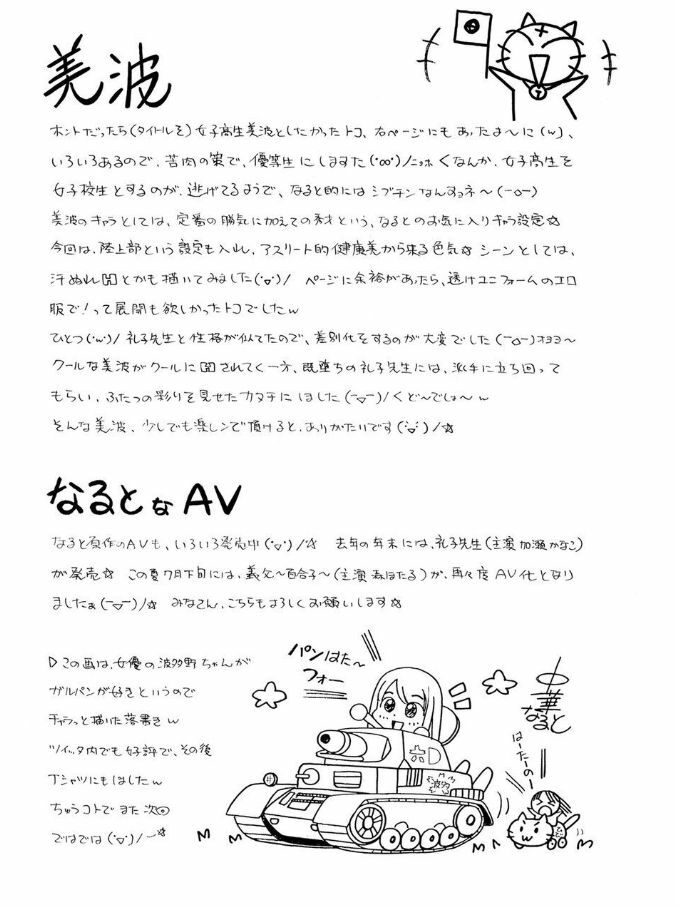 美波
ホントだったら(タイトルを)女子高生美波としたかったトコ、右ページにもあったよーに(w)、
いろいろあるので、苦肉の策で、優等生にしますた(°∞°)/ニッホ くなんか、女子高生を
女子校生とするのが、逃げてるようで、なると的にはシブチンなんすョネ〜(ー○ー)
美波のキャラとしては、定番の勝気に加えての秀才という、なるとのお気に入りキャラ設定☆
今回は、陸上部という設定も入れ、アスリート的健康美から来る色気☆ シーンとしては、
汗ぬれ図とかも描いてみました(°▽°)/ ページに余裕があったら、透けユニフォームのエロ
服で!って展開も欲しかったトコでしたw
ひとつ(°w°)/ 礼子先生と性格が似てたので、差別化をするのが大変でした(ー○ー)オヨヨ〜
クールな美波がクールに図されてく一方、既堕ちの礼子先生には、派手に立ち回って
もらい、ふたつの彩りを見せたカタチにしました(ー▽ー)/くど〜でしょ〜w
そんな美波、少しでも楽しンで頂けると、ありがたいです(°▽°)/☆
なるとなAV
なると原作のAVも、いろいろ発売中(°▽°)/☆ 去年の年末には、礼子先生(主演 加瀬かなこ)
が発売☆ この夏7月下旬には、義父〜百合子〜(主演 森ほたる)が、再々度AV化となり
ましたぁ(ー▽ー)/☆ みなさん、こちらもよろしくお願いします☆
▷この画は、女優の波多野ちゃんが
ガルパンが好きというので
チャラっと描いた落書きw
ツイッタ内でも好評で、その後
Tシャツにもしましたw
ちゅうコトでまた次回
ではでは(°▽°)/☆
パンはた〜
フォー
波多
はーたーのー
中華
なると